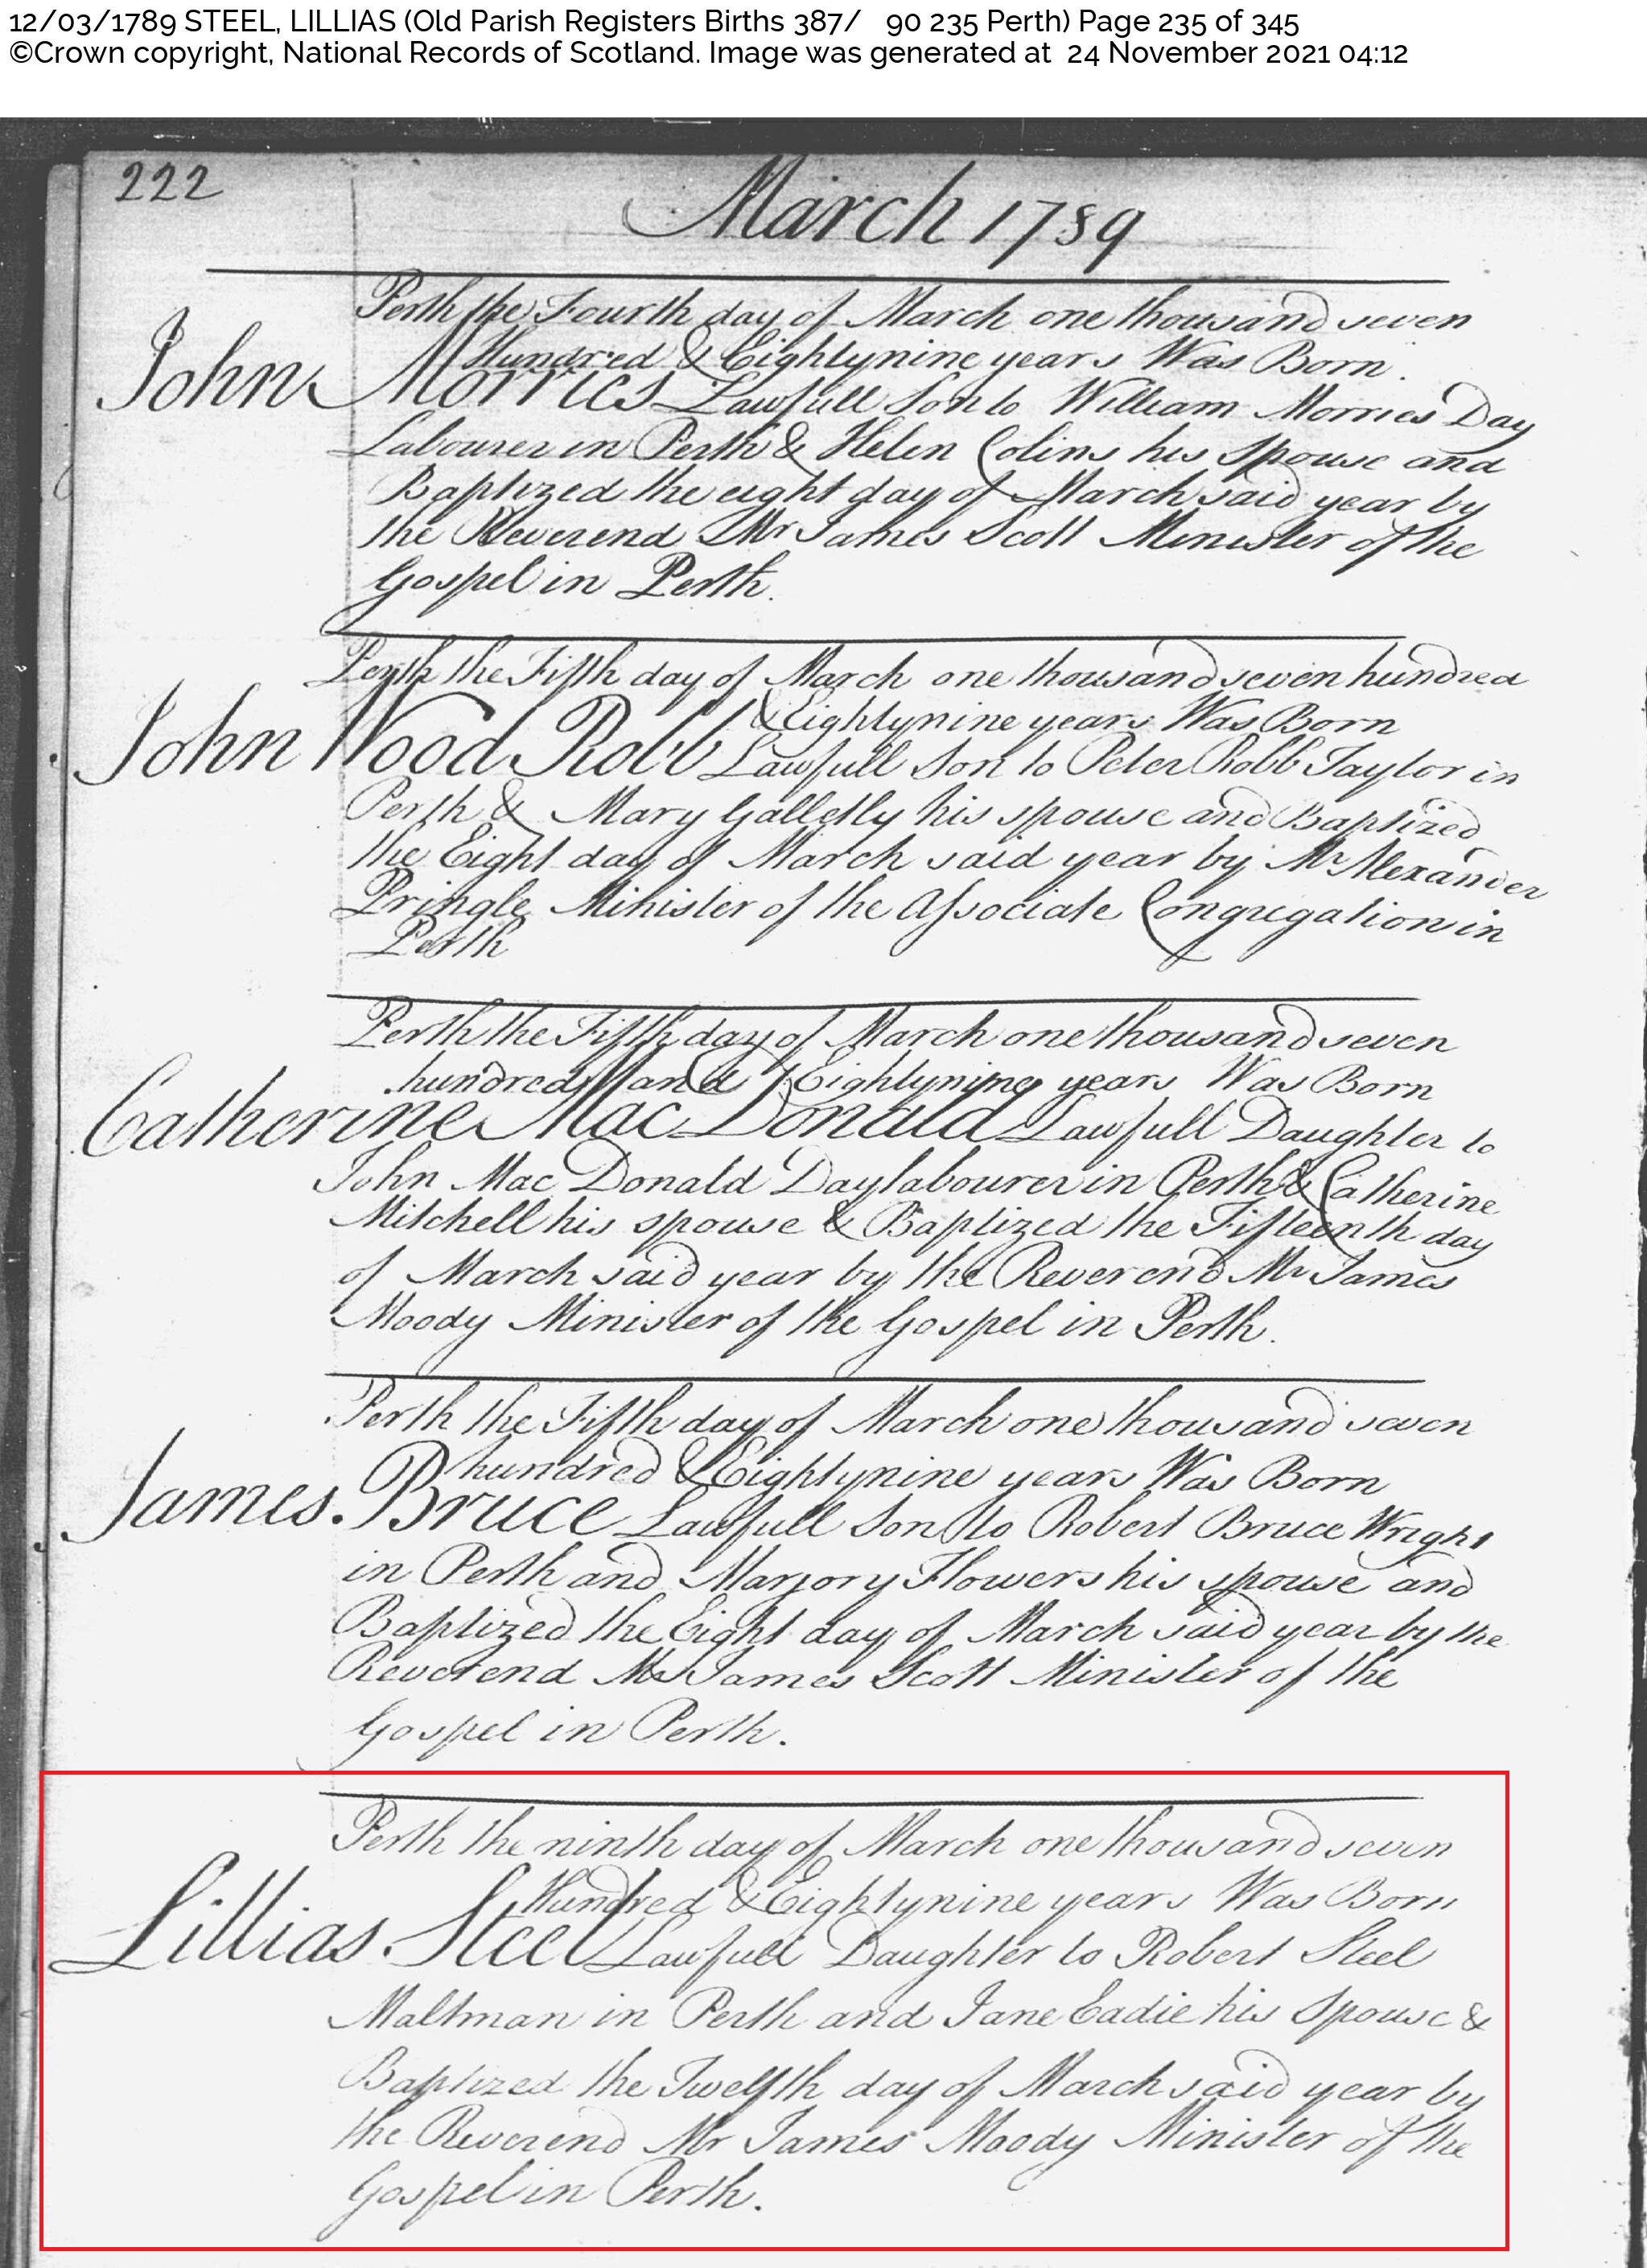 12/03/1789 STEEL, LILLIAS (Old Parish Registers Births 387/ 90 235 Perth) Page 235 of 345
©Crown copyright, National Records of Scotland. Image was generated at 24 November 2021 04:12
222
March 1789
Perth the Fourth day of March one thousand seven
Hundred & Eightynine years Was Born
John Morries Lawfull Son to William Morries Day
Labourer in Perth & Helen Colins his Spouse and
Baptized the eight day of March said year by
the Reverend Mr James Scott Minister of the
Gospel in Perth.
Perth the Fifth day of March one thousand seven hundred
& Eightynine years Was Born
John Wood Robb Lawfull Son to Peter Robb Taylor in
Perth & Mary Galletly his spouse and Baptized
the Eight day of March said year by Mr Alexander
Pringle Minister of the Associate Congregation in
Perth
Perth the Fifth day of March one thousand seven
hundred and Eightynine years Was Born
Catherine Mac Donald Lawfull Daughter to
John Mac Donald Daylabourer in Perth & Catherine
Mitchell his spouse & Baptized the Fifteenth day
of March said year by the Reverend Mr James
Moody Minister of the Gospel in Perth.
Perth the Fifth day of March one thousand seven
hundred & Eightynine years Was Born
James Bruce Lawfull Son to Robert Bruce Wright
in Perth and Marjory Flowers his spouse and
Baptized the Eight day of March said year by the
Reverend Mr James Scott Minister of the
Gospel in Perth.
Perth the ninth day of March one thousand seven
Hundred & Eightynine years Was Born
Lillias Steel Lawfull Daughter to Robert Steel
Maltman in Perth and Jane Eadie his Spouse &
Baptized the Twelfth day of March said year by
the Reverend Mr James Moody Minister of the
Gospel in Perth.